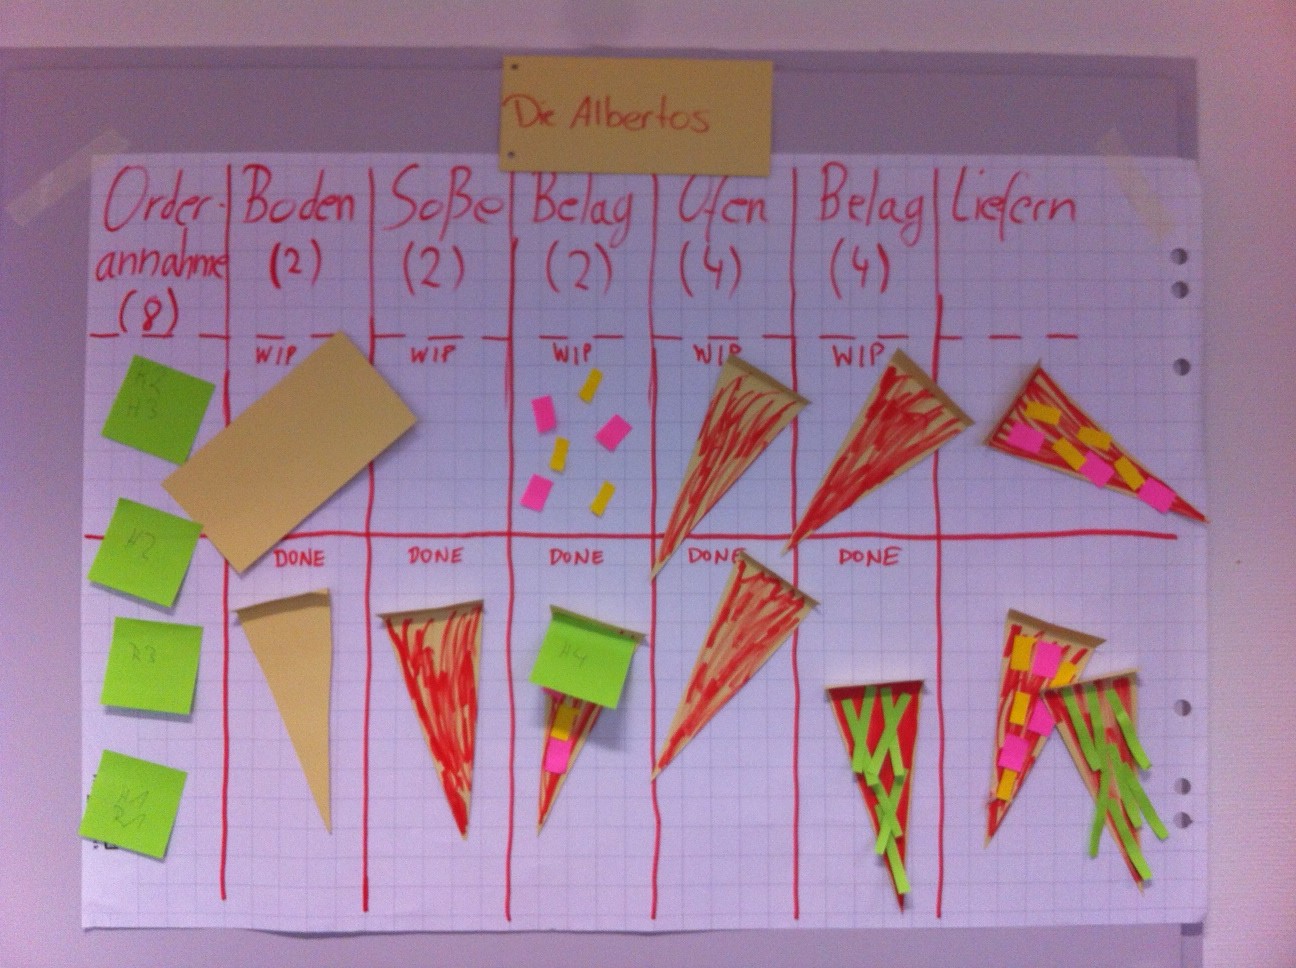 Die Albertos
Order-
annahme
(8)
Boden
(2)
Soße
(2)
Belag
(2)
Ofen
(4)
Belag
(4)
Liefern
WIP
WIP
WIP
WIP
WIP
DONE
DONE
DONE
DONE
DONE
H3
H2
R3
H4
H1
R1